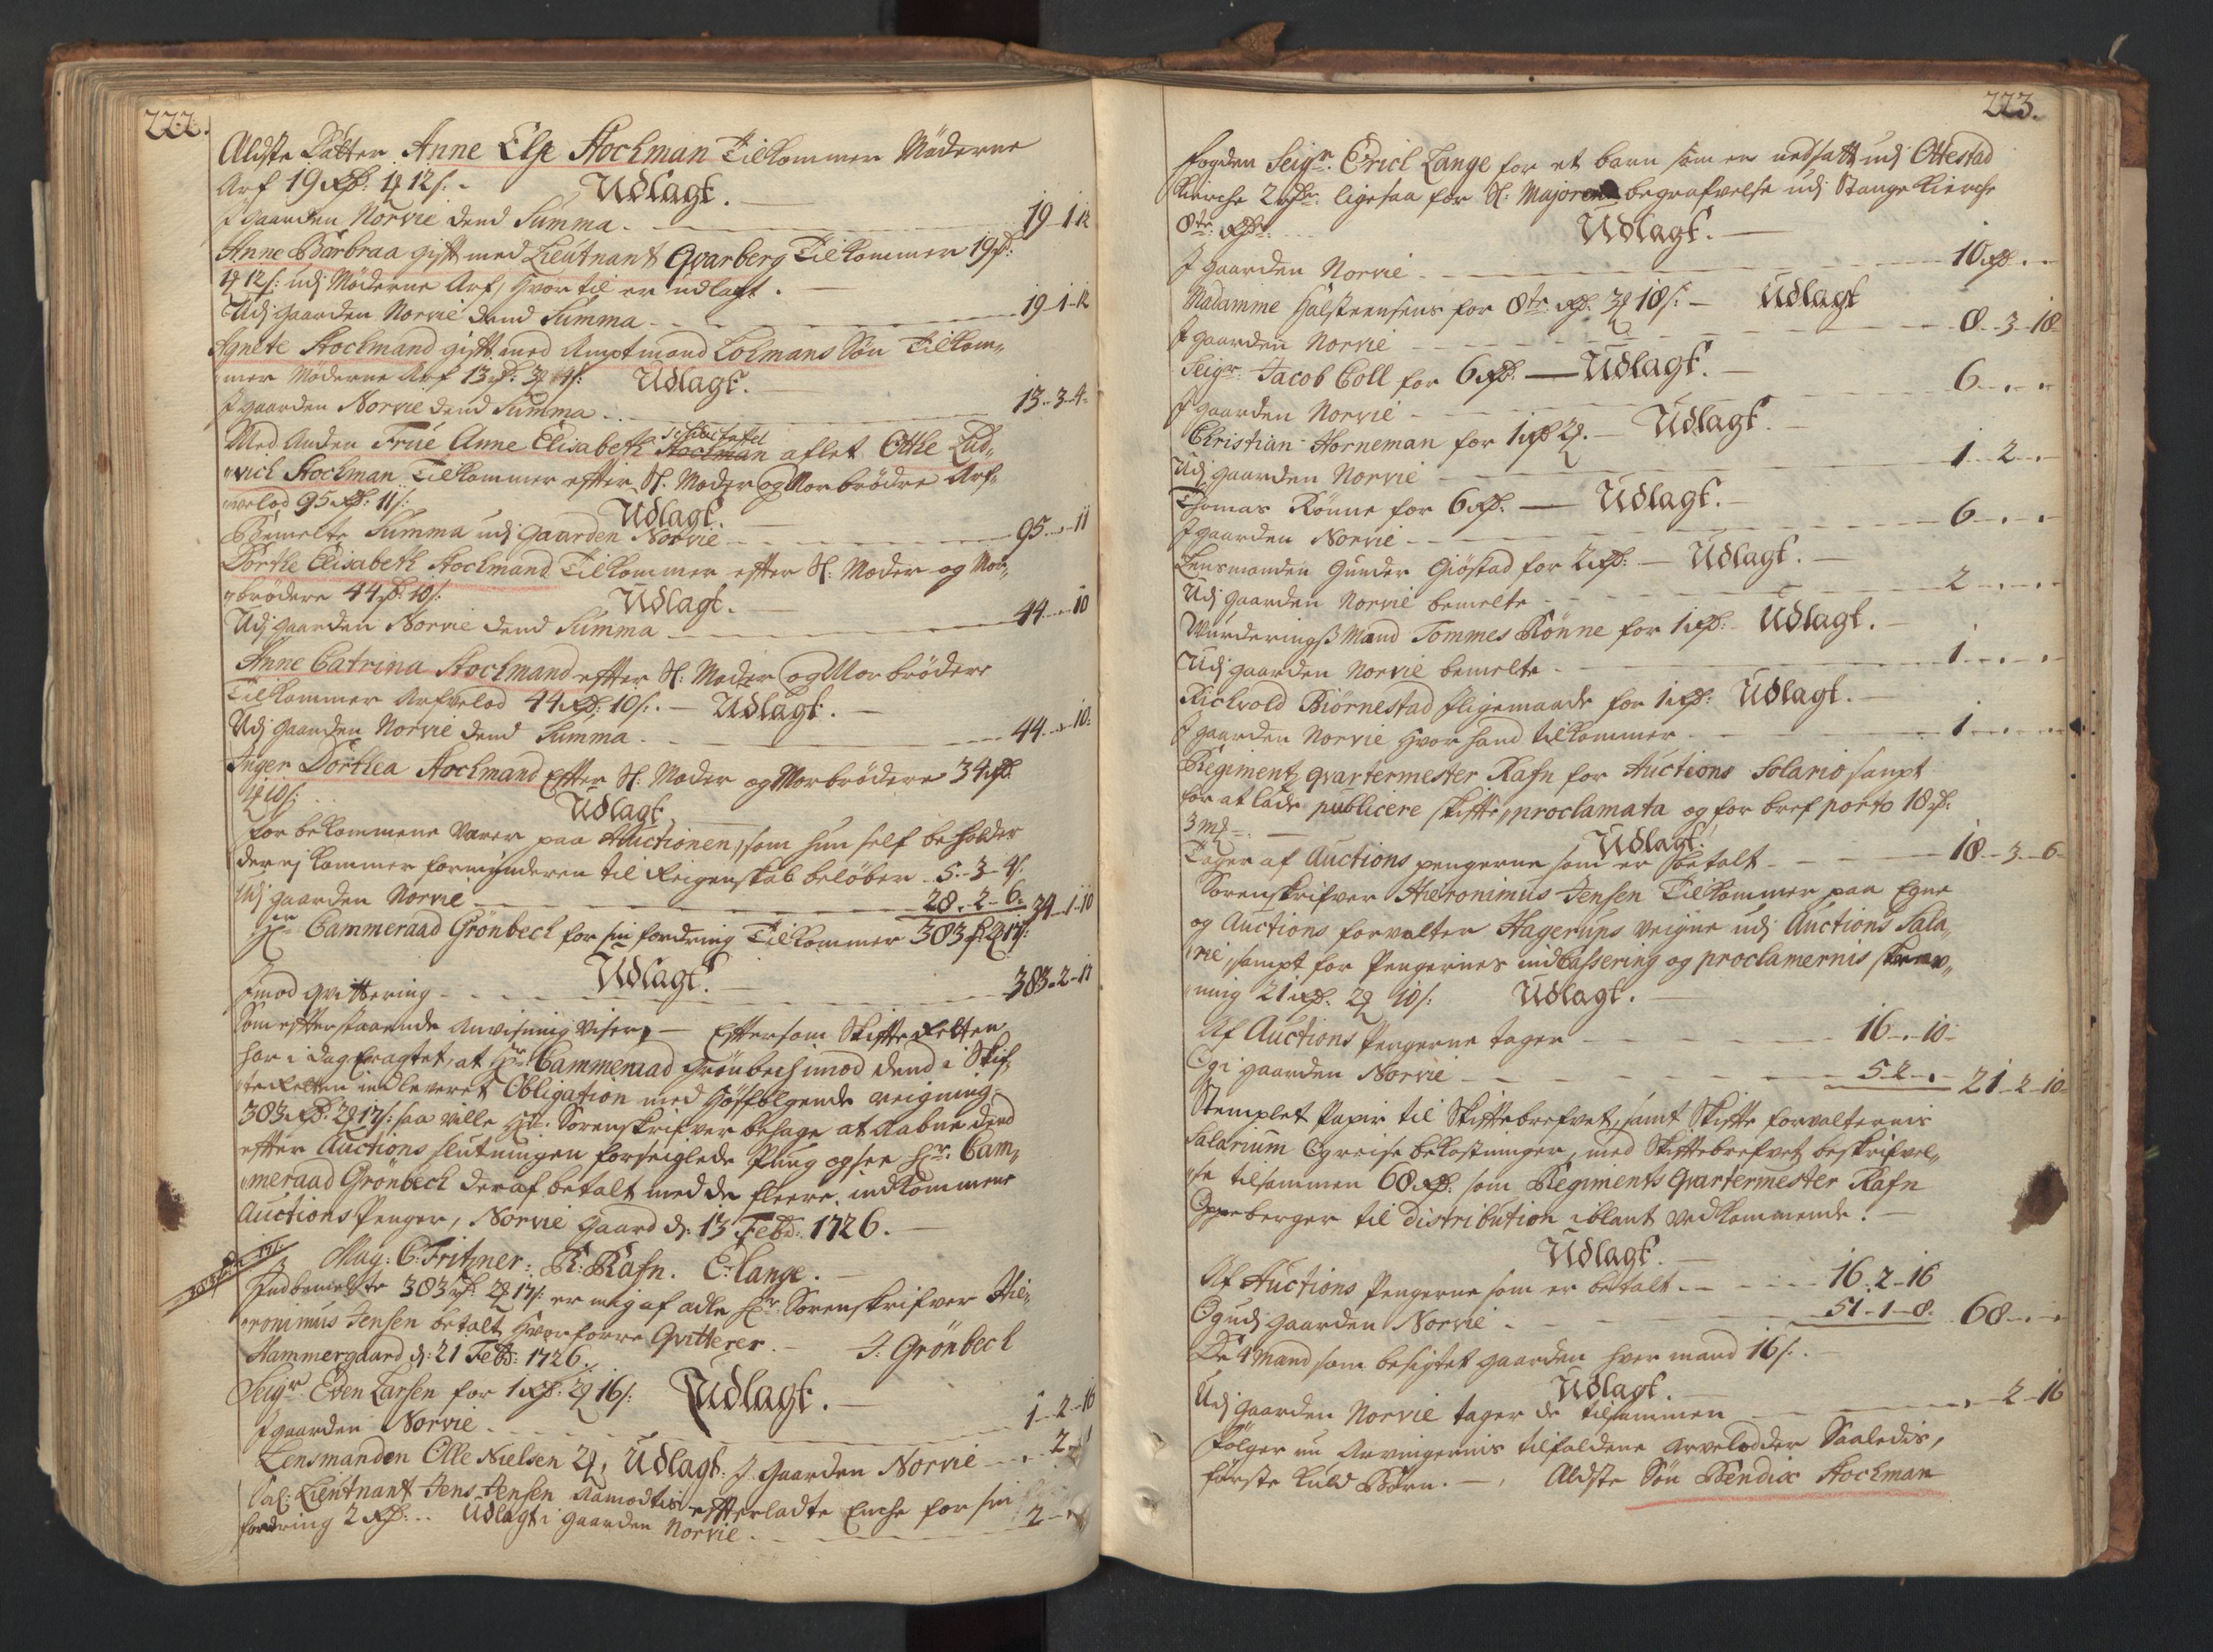 222.
Aldste Datter Anne Else Stochman Tilkommer Mödrene
Arf 19 Rd: 1 12 s:
Udlagt.
J gaarden Norvie dend Summa. 19-1-12
Anne Barbraa gift med Lieutnant Qvarberg Tilkommer 19 Rd:
1 12 s: udj Möderne Arf, Hvor til er udlagt.
Udj gaarden Norvie dend Summa 19-1-12
Agnete Stochmand gift med Amptmand Lohmans Sön Tilkom„
mer Möderne Arf 13 Rd: 3 4 s: Udlagt.
J gaarden Norvie dend Summa 13-3-4
Med Anden Frue Anne Elisabeth Stochman aflet Othe Lud„
„vich Stochman Tilkommer efter Sl. Moder og Morbrödre Arf„
„velod 95 Rd: 11 s:
Udlagt.
Bemelte Summa udj gaarden Norvie 95-„-11
Dorthe Elisabeth Stochmand Tilkommer efter Sl: Moder og Mor„
„brödere 44 Rd: 10 s:
Udlagt.
Udj gaarden Norvie dend Summa 44-„-10
Anne Catrina Stochmand efter Sl: Moder og Morbrödere
Tilkommer Arfvelod 44 Rd: 10 s: Udlagt.
Udj gaarden Norvie dend Summa 44-„-10
Inger Dorthea Stochmand Efter Sl: Moder og Morbrödere 34 Rd
1 10 s:
Udlagt
for bekommene Varer paa Auctionen, som hun self beholder
der ej kommer formynderen til Reigenskab beløber 5-3-4
Udj gaarden Norvie 28-2-6 34-1-10
Hr Cammeraad Grönbech for sin fordring Tilkommer 383 Rd 2 17 s:
Udlagt.
Jmod qvittering 383-2-17
Som efterstaaende Anvisning Viser, Eftersom Skifte Retten
har i dag Eragtet, at Hr: Cammeraad Grönbech imod dend i Skif„
„te Retten indleveret Obligation med Hosfølgende reigning
383 Rd: 2 17 s: saa ville Hr. Sorenskrifver behage at Aabne dend
efter Auctions slutningen forseiglede Pung og see Hr: Cam„
„meraad Grönbech deraf betalt med de fleere indkommene
Auctions Penger, Norvie gaard d: 13 Feb: 1726.
May: C: Fritzner: R: Rafn. E: Lange.
Indbemelte 383 Rd: 2 17 s: er mig af adle Hr Sorenskrifver Hie„
„ronimus Jensen betalt Hvorforre Qvitterer. J: Grönbech
Hammergaard d: 21 Feb: 1726.
Seigr Even Larsen for 1 Rd: 2 16 s: Udlagt.
J gaarden Norvie 1-2-16
Lensmanden Olle Nielsen 2, Udlagt. J gaarden Norvie 2
Sal: Lieutnant Jens Jensen efterladte Enche for sin
fordring 2 Rd: Udlagt i gaarden Norvie 2
223.
Fogden Seigr: Erich Lange for et barn som er nedsatt udj Ottestad
Kirche 2 Rdr ligesaa for Sl: Majorens begrafvelse udj Stange Kirche
8te Rdr
Udlagt.
J gaarden Norvie 10 Rd
Madamme Halsteensens for 8te Rd. 3 18 s: Udlagt
J gaarden Norvie 8-3-18
Seigr: Jacob Coll for 6 Rd. Udlagt.
J gaarden Norvie 6
Christian Horneman for 1 Rd 2. Udlagt.
Udj gaarden Norvie 1-2
Thomas Rönne for 6 Rd. Udlagt.
J gaarden Norvie 6
Lensmanden Gunder Giöstad for 2 Rd: Udlagt.
Udj gaarden Norvie bemelte 2
Wurderings Mand Tommes Rönne for 1 Rd: Udlagt.
Udj gaarden Norvie bemelte 1
Richvold Biörnestad sligemaade for 1 Rd: Udlagt.
J gaarden Norvie Hvor hand tilkommer 1
Regiments qvartermester Rafn for Auctions Solario sampt
for at lade publicere skifte proclamata og for bref porto 18 Rd:
3
Udlagt.
Tager af Auctions pengerne som er betalt 18-3-6
Sorenskrifver Hieronimus Jensen Tilkommer paa Egne
og Auctions forvalter Hagerups veigne udj Auctions Sala„
„rie, sampt for Pengernes indCassering og proclamernis
„ning 21 Rd. 2 10 s: Udlagt.
Af Auctions Pengerne tager 16-„-10
Og i gaarden Norvie 5-2-„ 21-2-10
Stemplet Papir til Skiftebrefvet, samt Skifte forvalternis
Salarium Og reise bekostninger, med Skiftebrefvet beskrifvel„
„se tilsammen 68 Rd: som Regiments Qvartermester Rafn
Oppeberger til distribution iblant Vedkommende.
Udlagt.
Af Auctions Pengerne som er betalt 16-2-16
Og udj gaarden Norvie 51-1-8 68
De 4 Mand som besigtet gaarden hver mand 16 s:
Udlagt.
Udj gaarden Norvie tager de tilsammen 2-16
Følger nu Arvingernis tilfaldene Arvelodder Saaledis,
første Kuld Börn. Aldste Sön Bendix Stochman